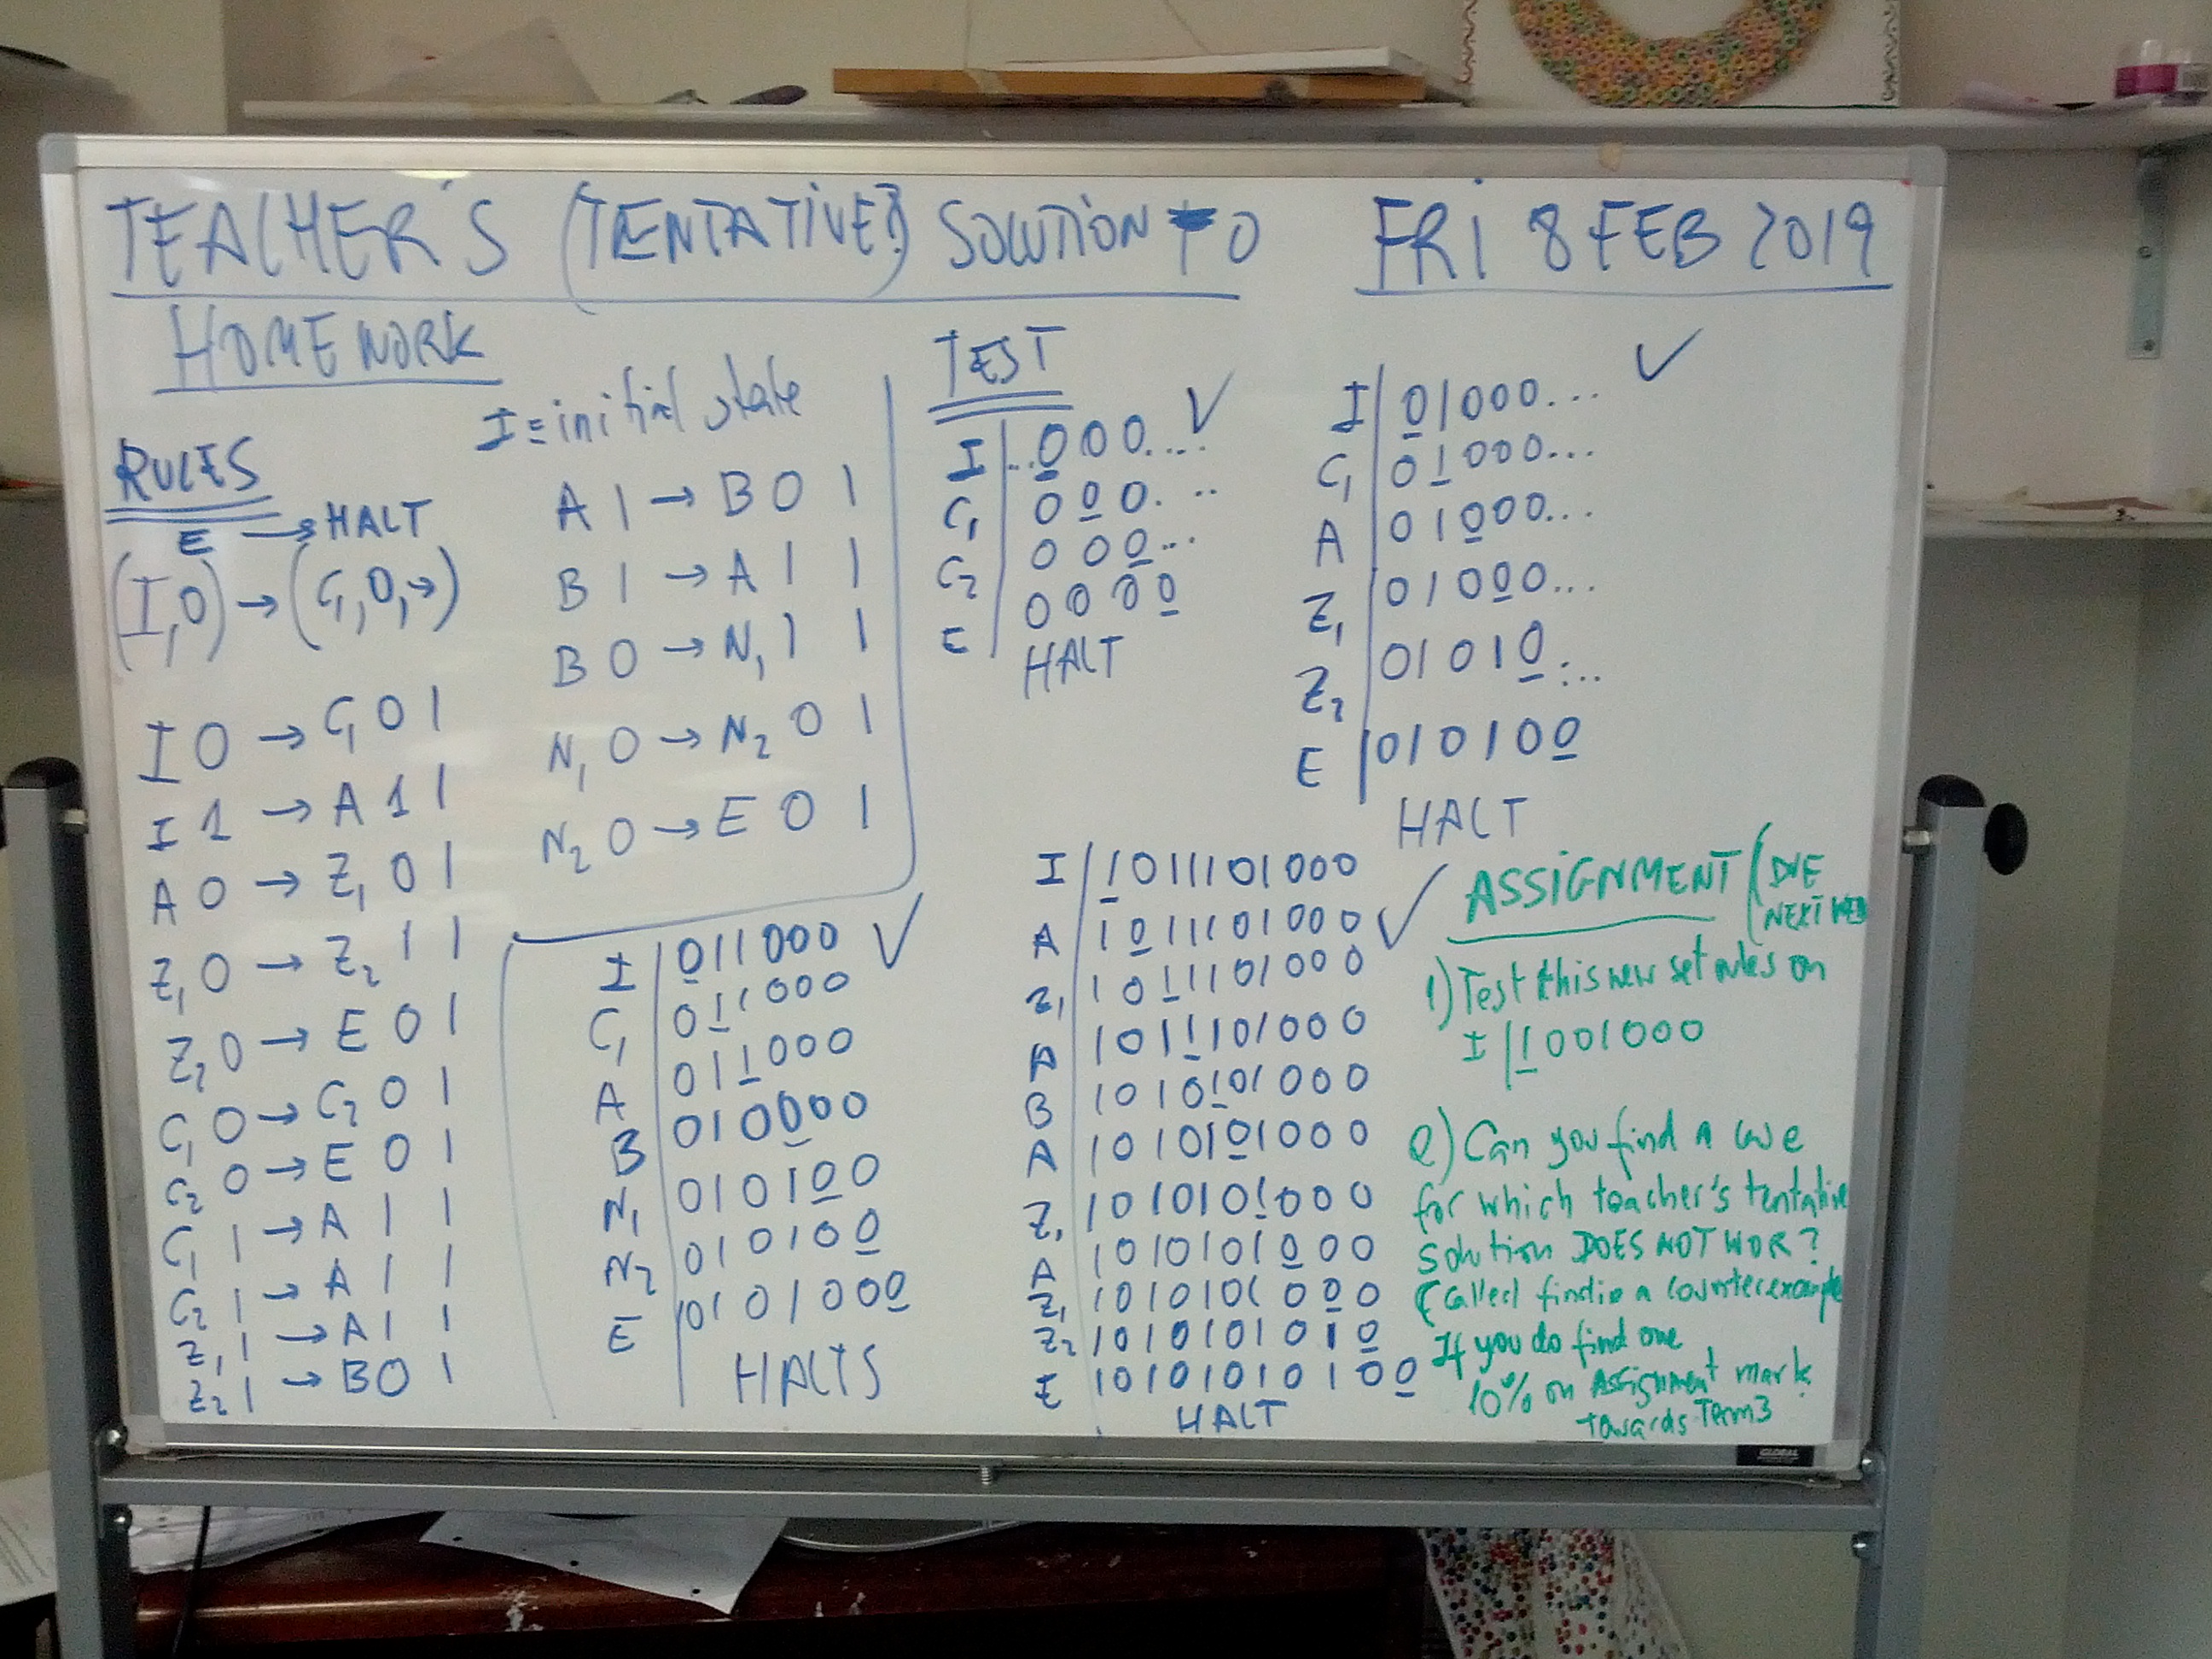 TEACHER'S (TENTATIVE?) SOLUTION TO
HOMEWORK
FRI 8 FEB 2019
I ≡ initial state
RULES
E → HALT
(I,0) → (C₁,0,→)
I 0 → C₁ 0 1
I 1 → A 1 1
A 0 → Z₁ 0 1
Z₁ 0 → Z₂ 1 1
Z₂ 0 → E 0 1
C₁ 0 → C₂ 0 1
C₂ 0 → E 0 1
C₁ 1 → A 1 1
C₂ 1 → A 1 1
Z₁ 1 → A 1 1
Z₂ 1 → B 0 1
A 1 → B 0 1
B 1 → A 1 1
B 0 → N₁ 1 1
N₁ 0 → N₂ 0 1
N₂ 0 → E 0 1
TEST
I | ...000.... ✓
C₁ | 000. ..
C₂ | 000...
E | 0000
HALT
I | 01000... ✓
C₁ | 01000...
A | 01000...
Z₁ | 01000...
Z₂ | 01010...
E | 010100
HALT
I | 011000 ✓
C₁ | 011000
A | 011000
B | 010000
N₁ | 010100
N₂ | 010100
E | 0101000
HALTS
I | 1011101000
A | 1011101000 ✓
Z₁ | 1011101000
A | 1011101000
B | 1010101000
A | 1010101000
Z₁ | 1010101000
A | 1010101000
Z₁ | 1010101000
Z₂ | 1010101010
E | 10101010100
HALT
ASSIGNMENT (DUE
NEXT WED
1) Test this new set rules on
I | 1001000
2) Can you find a case
for which teacher's tentative
solution DOES NOT WOR?
(called findin a counterexample
If you do find one
10% on Assignment mark
towards Term3
GLOBAL